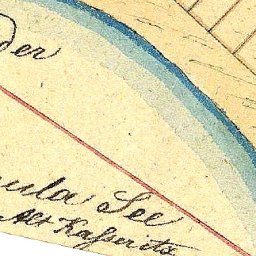 der
ula See
Alt Kasparitz